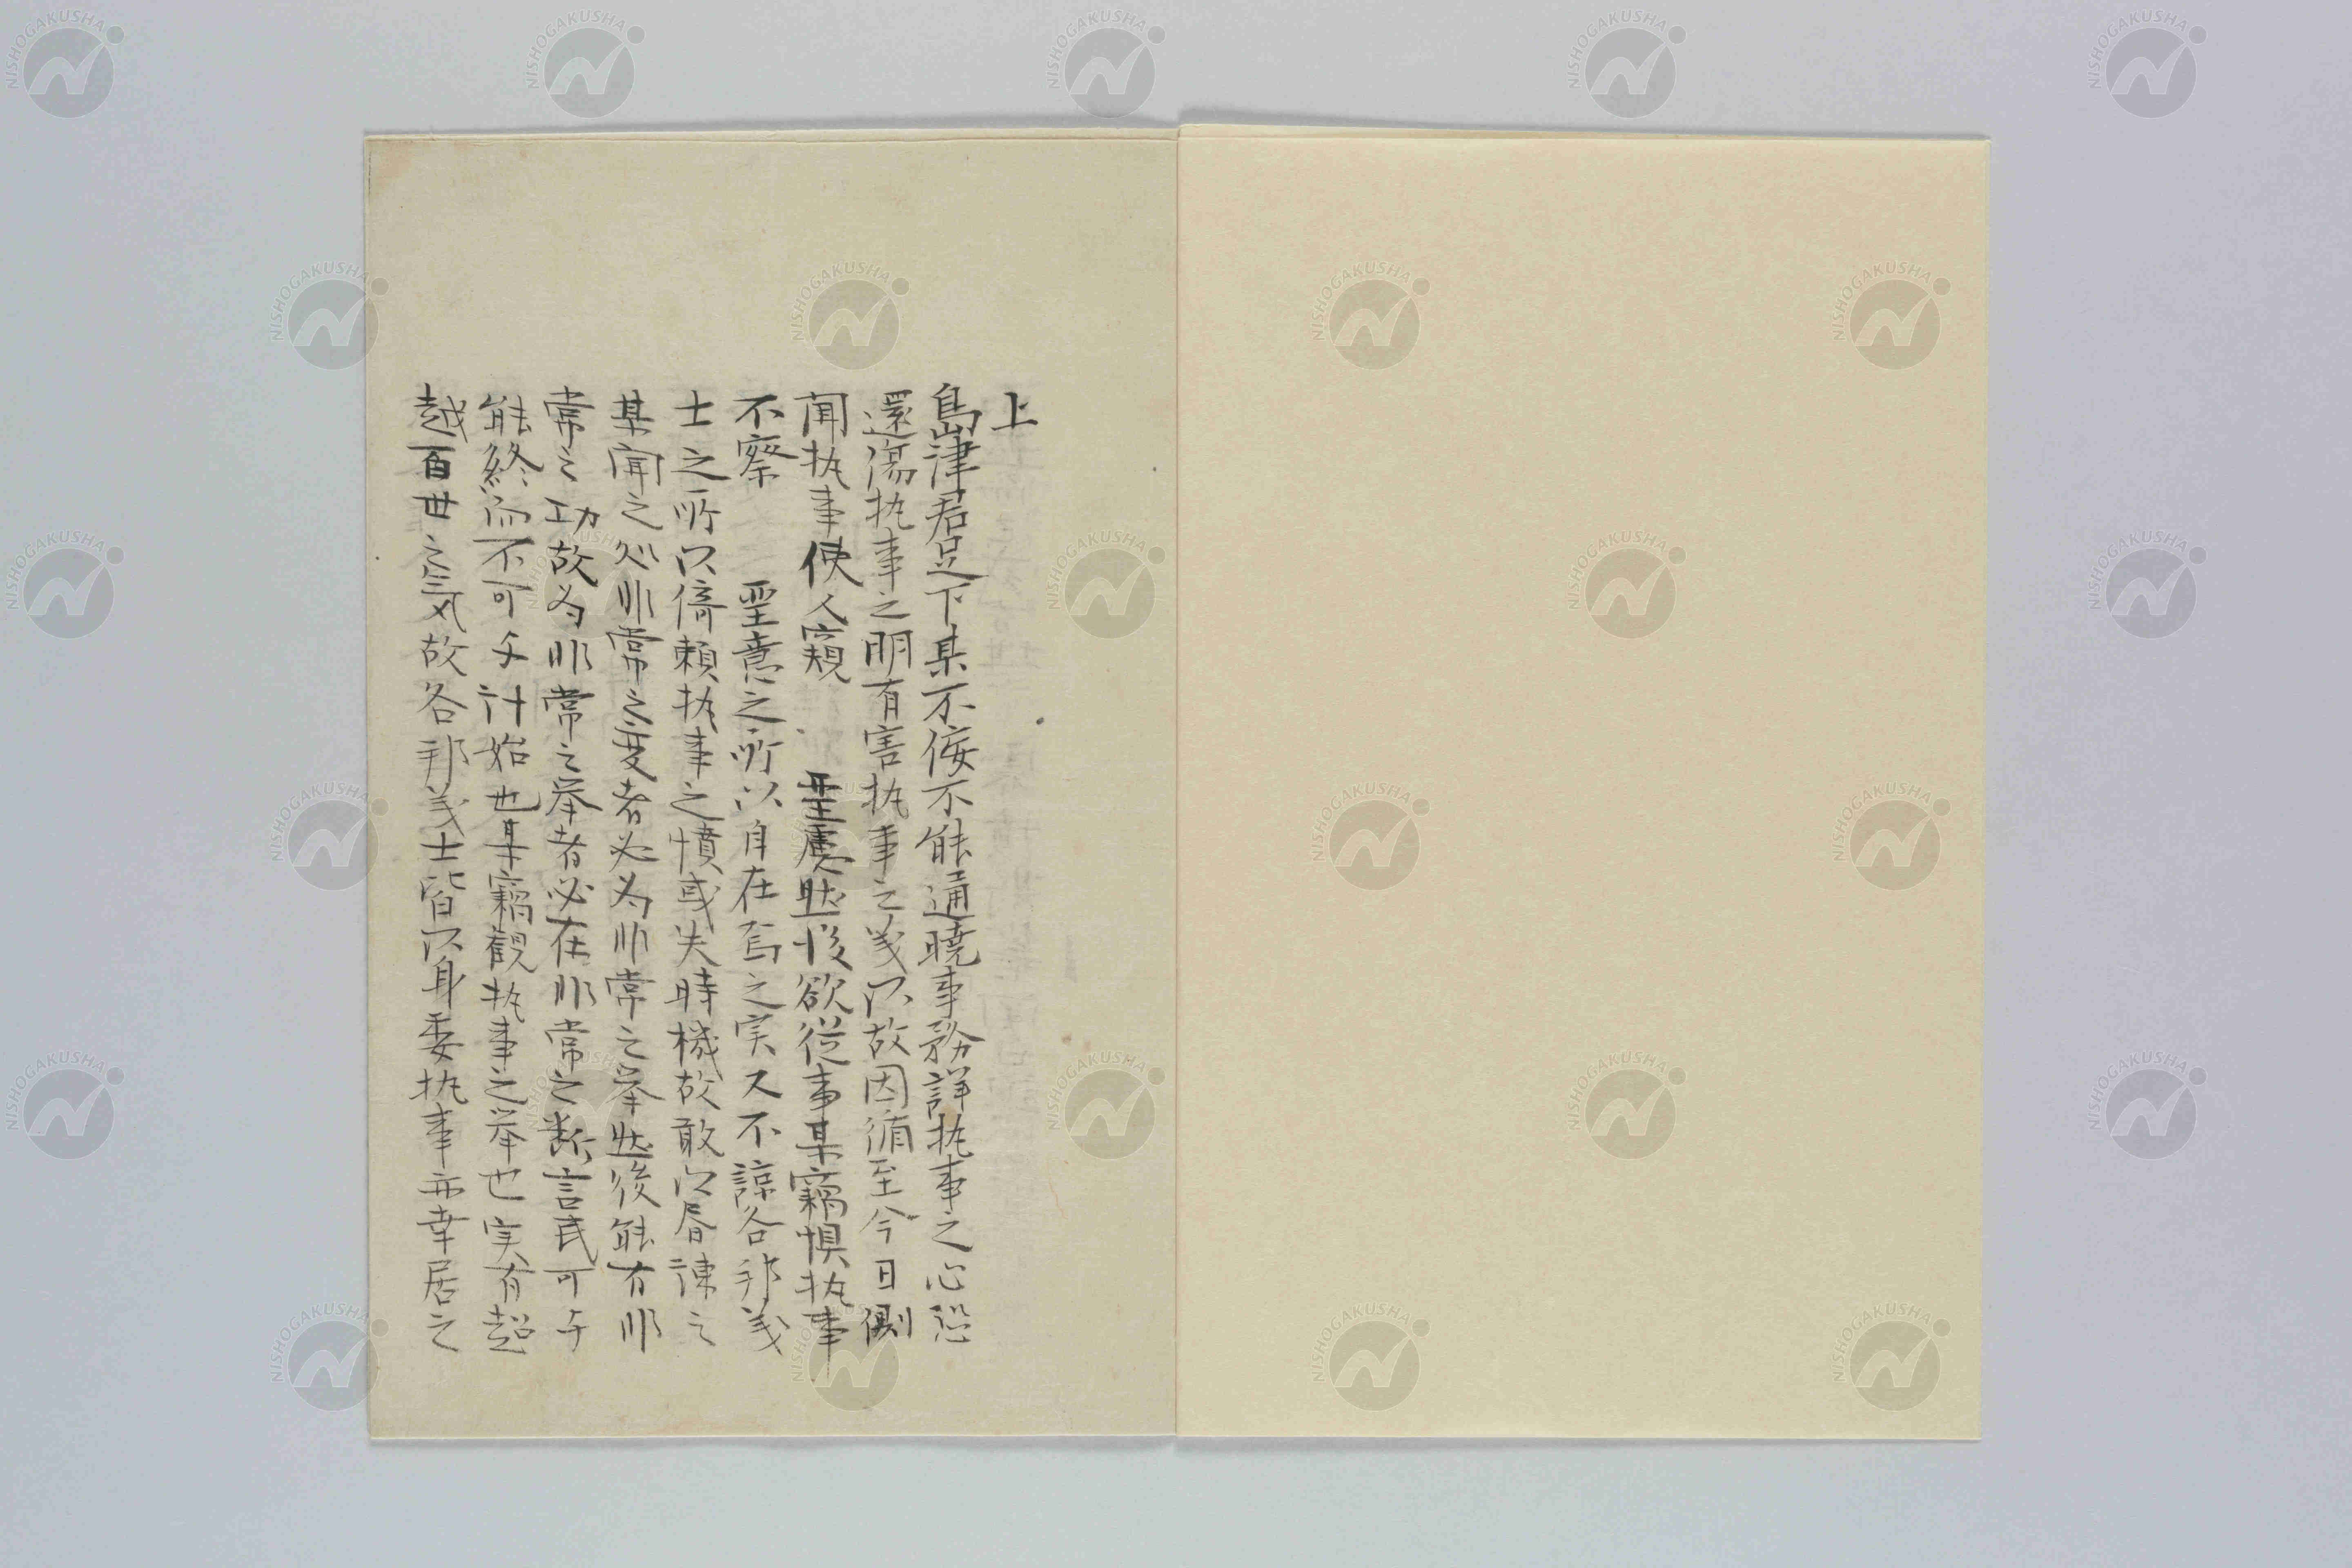 上
島津君足下某不佞不能通暁事務詳執事之心恐
還傷執事之明有害執事之義以故因循至今日側
聞執事使人窺　聖慮然後欲従事某竊惧執事
不察　聖意之所以自在焉之実又不諒各邦義
士之所以倚頼執事之憤或失時機故敢以屠諌之
某聞之処非常之変者必為非常之挙然後能有非
常之功故為非常之挙者必在非常之断言民可与
能終而不可与計始也某竊観執事之挙也実有超
越百世之気故各邦義士皆以身委執事亦幸居之
NISHOGAKUSHA